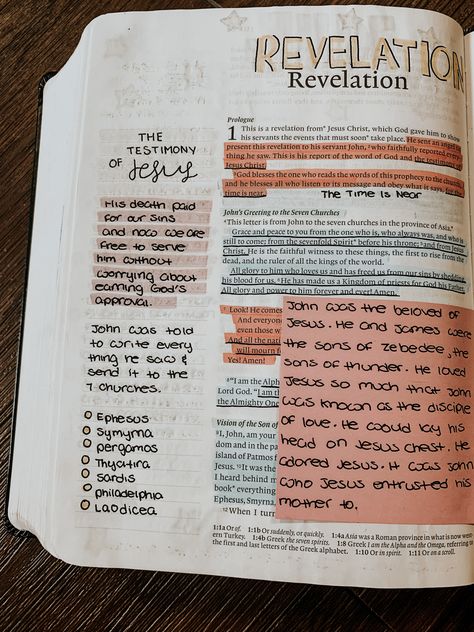 REVELATION
Revelation
THE
TESTIMONY
OF Jesus
HIS DEATH PAID
FOR OUR SINS
AND NOW WE ARE
FREE TO SERVE
HIM WITHOUT
WORRYING ABOUT
EARNING GOD'S
APPROVAL.
JOHN WAS TOLD
TO WRITE EVERY
THING HE SAW &
SEND IT TO THE
7 CHURCHES.
EPHESUS
SYMYRNA
PERGAMOS
THYATIRA
SARDIS
PHILADELPHIA
LAODICEA
Prologue
1 This is a revelation from* Jesus Christ, which God gave him to show
his servants the events that must soon* take place. He sent an angel to
present this revelation to his servant John, ²who faithfully reported every-
thing he saw. This is his report of the word of God and the testimony of
Jesus Christ.
³God blesses the one who reads the words of this prophecy to the church,
and he blesses all who listen to its message and obey what it says, for the
time is near.
THE TIME IS NEAR
John's Greeting to the Seven Churches
⁴This letter is from John to the seven churches in the province of Asia.*
Grace and peace to you from the one who is, who always was, and who is
still to come; from the sevenfold Spirit* before his throne; ⁵and from Jesus
Christ. He is the faithful witness to these things, the first to rise from the
dead, and the ruler of all the kings of the world.
All glory to him who loves us and has freed us from our sins by shedding
his blood for us. ⁶He has made us a Kingdom of priests for God his Father.
All glory and power to him forever and ever! Amen.
⁷ Look! He comes
And everyone
even those w
And all the nati
will mourn f
Yes! Amen!
⁸"I am the Alph
Lord God. "I am t
the Almighty One
Vision of the Son of
⁹I, John, am your
and in the
island of Patmos f
Jesus. ¹⁰It was the
I heard behind m
book* everything
Smyrna,
¹²When I turn
JOHN WAS THE BELOVED OF
JESUS. HE AND JAMES WERE
THE SONS OF ZEBEDEE, THE
SONS OF THUNDER. HE LOVED
JESUS SO MUCH THAT JOHN
WAS KNOWN AS THE DISCIPLE
OF LOVE. HE WOULD LAY HIS
HEAD ON JESUS CHEST. HE
ADORED JESUS. IT WAS JOHN
WHO JESUS ENTRUSTED HIS
MOTHER TO.
1:1a Or of. 1:1b Or suddenly, or quickly. 1:4a Asia was a Roman province in what is now west-
ern Turkey. 1:4b Greek the seven spirits. 1:8 Greek I am the Alpha and the Omega, referring to
the first and last letters of the Greek alphabet. 1:10 Or in spirit. 1:11 Or on a scroll.